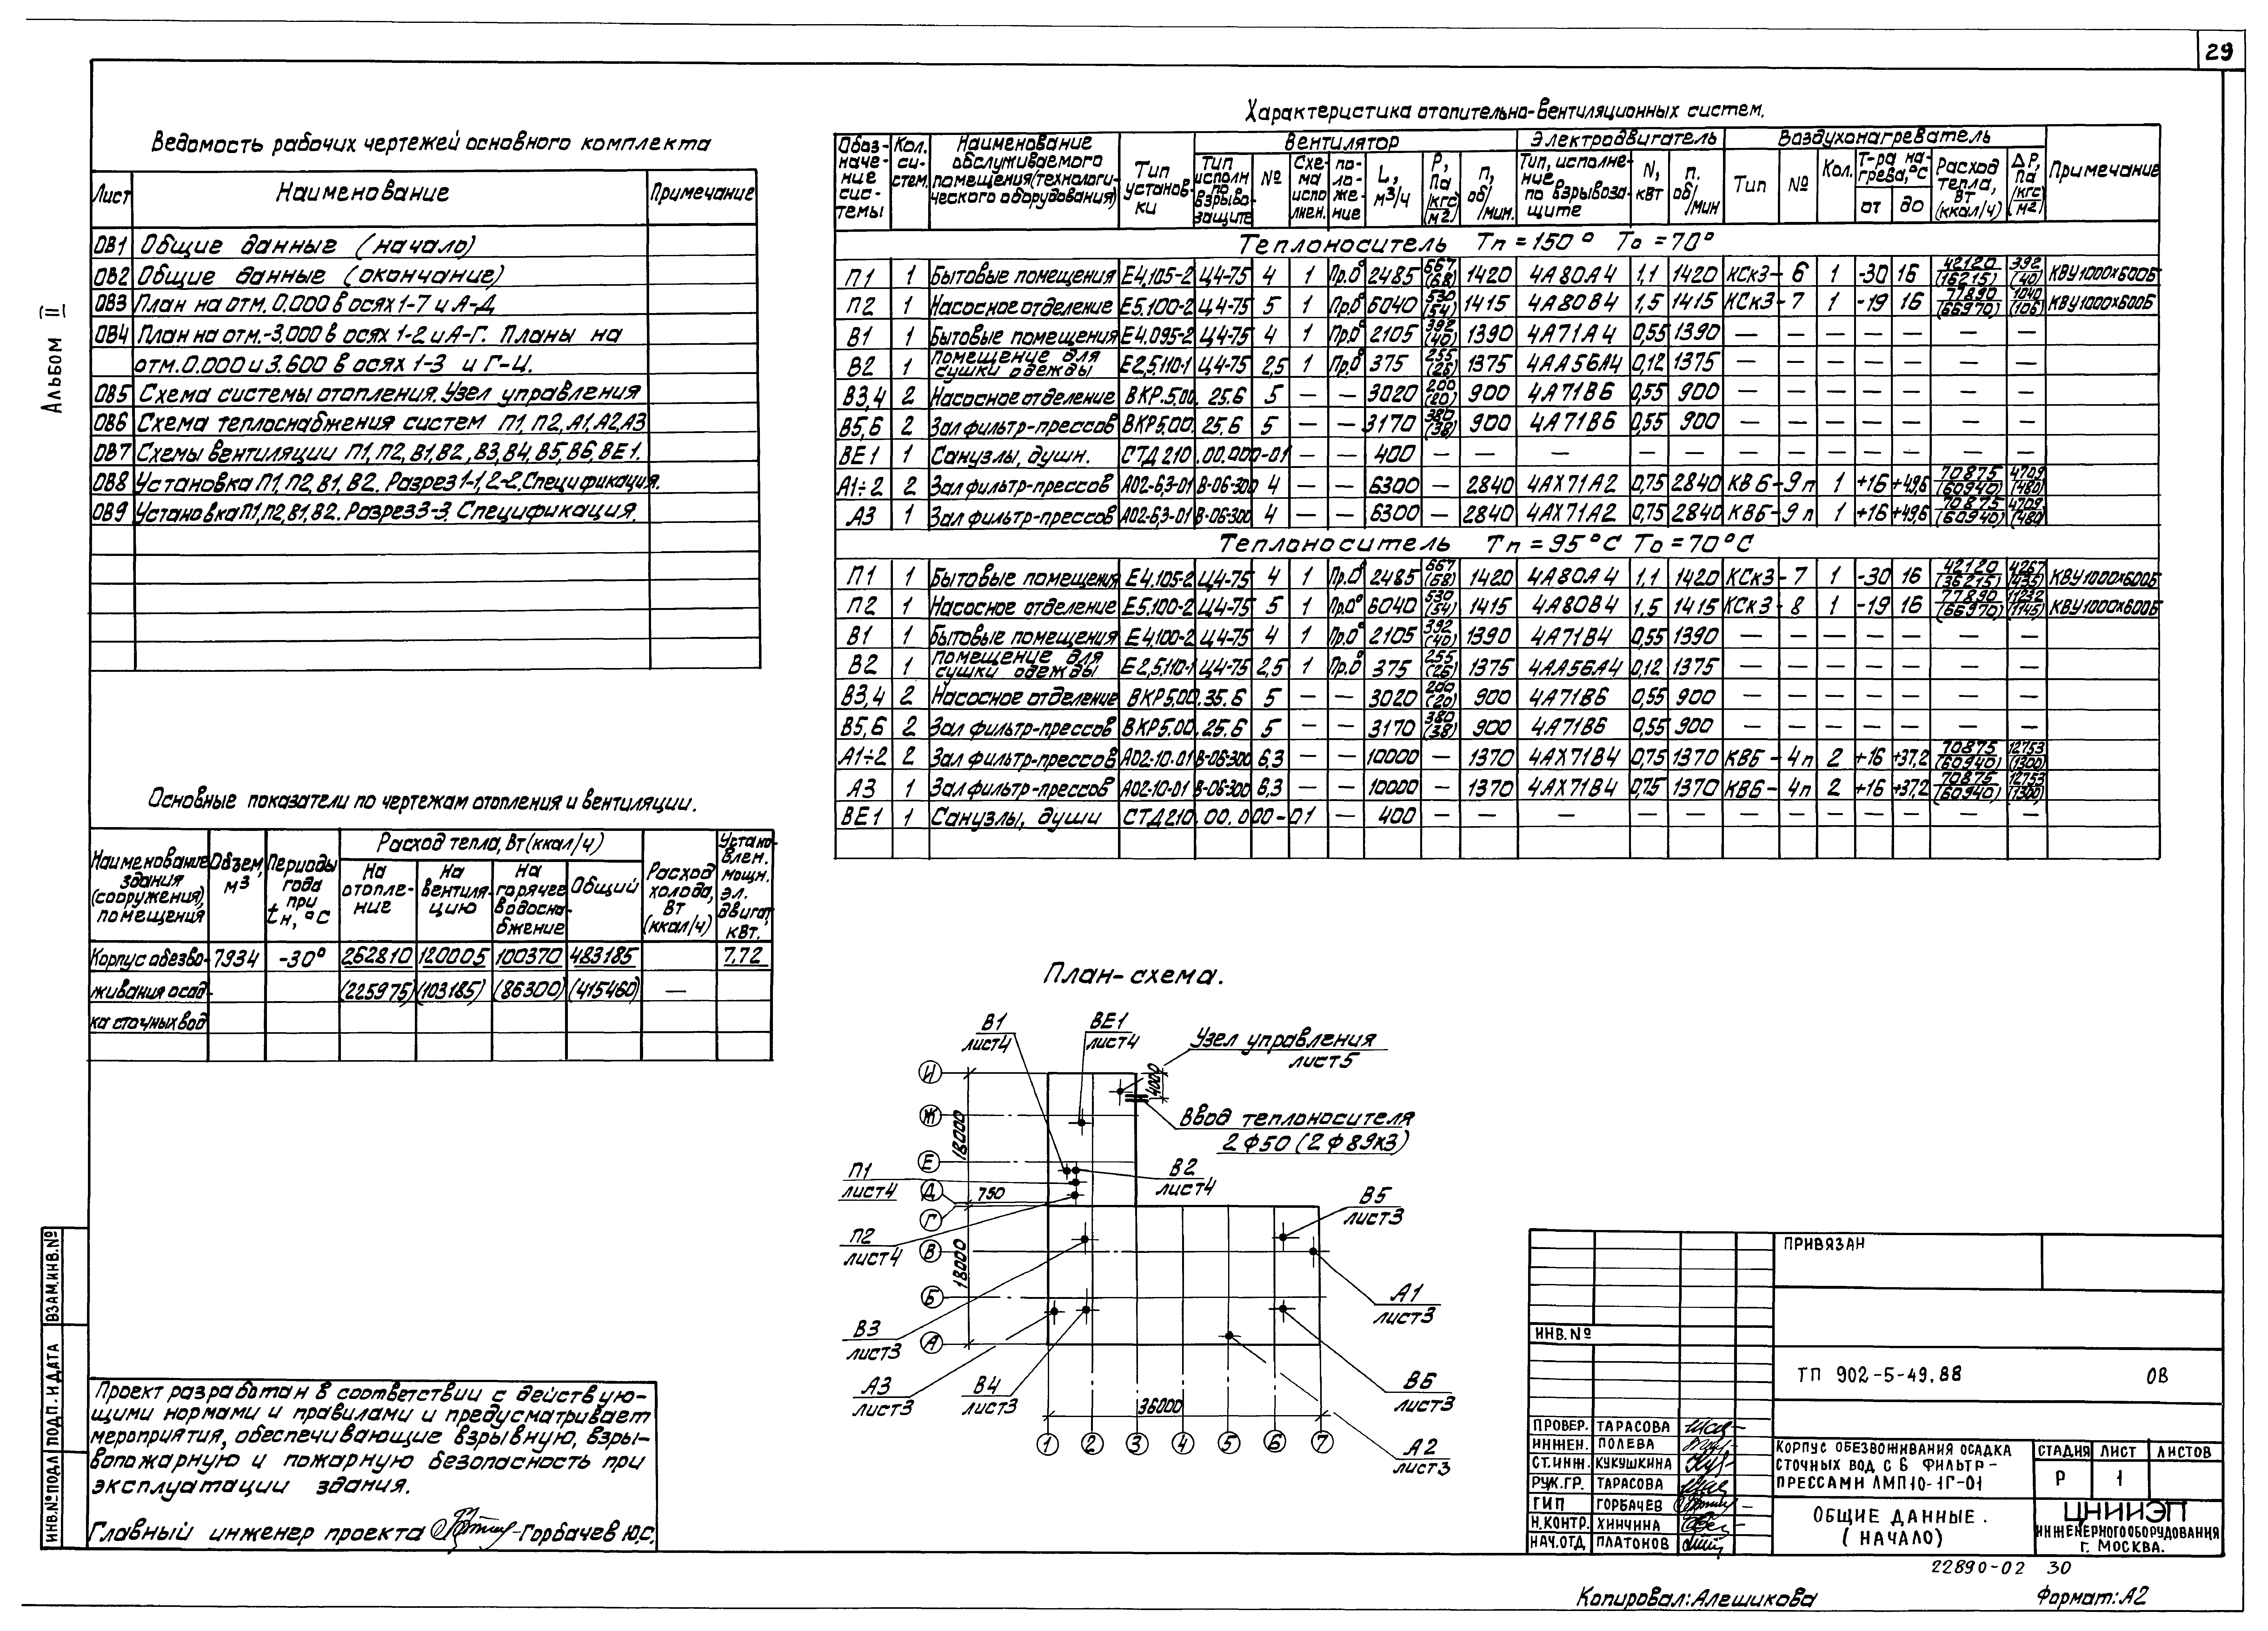 29
Альбом II
Ведомость рабочих чертежей основного комплекта
Лист Наименование Примечание
ОВ1 Общие данные (начало)
ОВ2 Общие данные (окончание)
ОВ3 План на отм. 0.000 в осях 1-7 и А-Д
ОВ4 План на отм.-3.000 в осях 1-2 и А-Г. Планы на
отм. 0.000 и 3.600 в осях 1-3 и Г-И.
ОВ5 Схема системы отопления. Узел управления
ОВ6 Схема теплоснабжения систем П1, П2, А1, А2, А3
ОВ7 Схемы вентиляции П1, П2, В1, В2, В3, В4, В5, В6, ВЕ1.
ОВ8 Установка П1, П2, В1, В2. Разрез 1-1, 2-2. Спецификация.
ОВ9 Установка П1, П2, В1, В2. Разрез 3-3. Спецификация.
Характеристика отопительно-вентиляционных систем.
Обоз-начение сис-темы Кол. си-стем. Наименование обслуживаемого помещения (технологи-ческого оборудования) Тип установ-ки Вентилятор Электродвигатель Воздухонагреватель Примечание
Тип исполн по взрыво-защите № Схе-ма испо лнен. по-ло-же-ние L, м3/ч Р, Па (кгс/м2) п, об/мин. Тип, исполне-ние по взрывоза-щите N, кВт п. об/мин Тип № Кол. Т-ра на-грева, °С от до Расход тепла, Вт (ккал/ч) ΔР, Па (кгс/м2)
Теплоноситель Тп = 150° То = 70°
П1 1 Бытовые помещения Е4.105-2 Ц4-75 4 1 Пр.0° 2485 667 (68) 1420 4А80А4 1,1 1420 КСк3- 6 1 -30 16 42120 (16215) 392 (40) КВУ1000х600Б
П2 1 Насосное отделение Е5.100-2 Ц4-75 5 1 Пр.0° 6040 530 (54) 1415 4А80В4 1,5 1415 КСк3- 7 1 -19 16 77890 (66970) 1040 (106) КВУ1000х600Б
В1 1 Бытовые помещения Е4.095-2 Ц4-75 4 1 Пр.0° 2105 392 (40) 1390 4А71А4 0,55 1390 — — — — — — —
В2 1 помещение для сушки одежды Е2,5.110-1 Ц4-75 2,5 1 Пр.0° 375 255 (26) 1375 4АА56А4 0,12 1375 — — — — — — —
В3,4 2 Насосное отделение ВКР.5.00. 25.6 5 — — 3020 200 (20) 900 4А71В6 0,55 900 — — — — — — —
В5,6 2 Зал фильтр-прессов ВКР5.00. 25,6 5 — — 3170 380 (38) 900 4А71В6 0,55 900 — — — — — — —
ВЕ1 1 Санузлы, душн. СТД 210 .00.000-01 — — 400 — — — — — — — — — — — —
А1÷2 2 Зал фильтр-прессов А02-6,3-01 В-06-300 4 — — 6300 — 2840 4АХ71А2 0,75 2840 КВБ- 9п 1 +16 +49,6 70875 (60940) 4709 (480)
А3 1 Зал фильтр-прессов А02-6,3-01 В-06-300 4 — — 6300 — 2840 4АХ71А2 0,75 2840 КВБ- 9п 1 +16 +49,6 70875 (60940) 4709 (480)
Теплоноситель Тп = 95°С То = 70°С
П1 1 Бытовые помещения Е4.105-2 Ц4-75 4 1 Пр.0° 2485 667 (68) 1420 4А80А4 1,1 1420 КСк3- 7 1 -30 16 42120 (36215) 4267 (435) КВУ1000х600Б
П2 1 Насосное отделение Е5.100-2 Ц4-75 5 1 Пр.0° 6040 530 (54) 1415 4А80В4 1,5 1415 КСк3- 8 1 -19 16 77890 (66970) 11232 (1145) КВУ1000х600Б
В1 1 Бытовые помещения Е4.100-2 Ц4-75 4 1 Пр.0° 2105 392 (40) 1390 4А71В4 0,55 1390 — — — — — — —
В2 1 помещение для сушки одежды Е2,5.110-1 Ц4-75 2,5 1 Пр.0° 375 255 (26) 1375 4АА56А4 0,12 1375 — — — — — — —
В3,4 2 Насосное отделение ВКР5.00. 35.6 5 — — 3020 200 (20) 900 4А71В6 0,55 900 — — — — — — —
В5,6 2 Зал фильтр-прессов ВКР5.00. 25.6 5 — — 3170 380 (38) 900 4А71В6 0,55 900 — — — — — — —
А1÷2 2 Зал фильтр-прессов А02-10-01 В-06-300 6,3 — — 10000 — 1370 4АХ71В4 0,75 1370 КВБ- 4п 2 +16 +37,2 70875 (60940) 12753 (1300)
А3 1 Зал фильтр-прессов А02-10-01 В-06-300 6,3 — — 10000 — 1370 4АХ71В4 0,75 1370 КВБ- 4п 2 +16 +37,2 70875 (60940) 12753 (1300)
ВЕ1 1 Санузлы, души СТД210. 00.000-01 — 400 — — — — — — — — — — — —
Основные показатели по чертежам отопления и вентиляции.
Наименование здания (сооружения), помещения Объем, м3 Периоды года при tн, °С Расход тепла, Вт (ккал/ч) Расход холода, Вт (ккал/ч) Устано-влен. мощн. эл. двигат, кВт.
На отопле-ние На вентиля-цию На горячее водосна-бжение Общий
Корпус обезво- 7934 -30° 262810 120005 100370 483185 7,72
живания осад- (225975) (103185) (86300) (415460) —
ка сточных вод
План-схема.
В1 лист4
ВЕ1 лист4
Узел управления
лист5
4000
Ввод теплоносителя
2 ф50 (2 ф 89х3)
И
Ж
Е
Д
Г
В
Б
А
18000
750
18000
П1 лист4
В2 лист4
П2 лист4
В5 лист3
А1 лист3
В3 лист3
А3 лист3
В4 лист3
В6 лист3
А2 лист3
36000
1 2 3 4 5 6 7
Проект разработан в соответствии с действую-
щими нормами и правилами и предусматривает
мероприятия, обеспечивающие взрывную, взры-
вопожарную и пожарную безопасность при
эксплуатации здания.
Главный инженер проекта Горбачев Ю.С.
ВЗАМ.ИНВ.№
ПОДП. И ДАТА
ИНВ.№ ПОДЛ
ПРИВЯЗАН
ИНВ.№
ТП 902-5-49.88 ОВ
ПРОВЕР. ТАРАСОВА
ИНЖЕН. ПОЛЕВА
СТ.ИНЖ. КУКУШКИНА
РУК.ГР. ТАРАСОВА
ГИП ГОРБАЧЕВ
Н.КОНТР. ХИНЧИНА
НАЧ.ОТД ПЛАТОНОВ
КОРПУС ОБЕЗВОЖИВАНИЯ ОСАДКА
СТОЧНЫХ ВОД С 6 ФИЛЬТР-
ПРЕССАМИ ЛМП10-1Г-01
СТАДИЯ ЛИСТ ЛИСТОВ
Р 1
ОБЩИЕ ДАННЫЕ.
(НАЧАЛО)
ЦНИИЭП
ИНЖЕНЕРНОГО ОБОРУДОВАНИЯ
Г. МОСКВА.
22890-02 30
Копировал: Алешикова Формат: А2